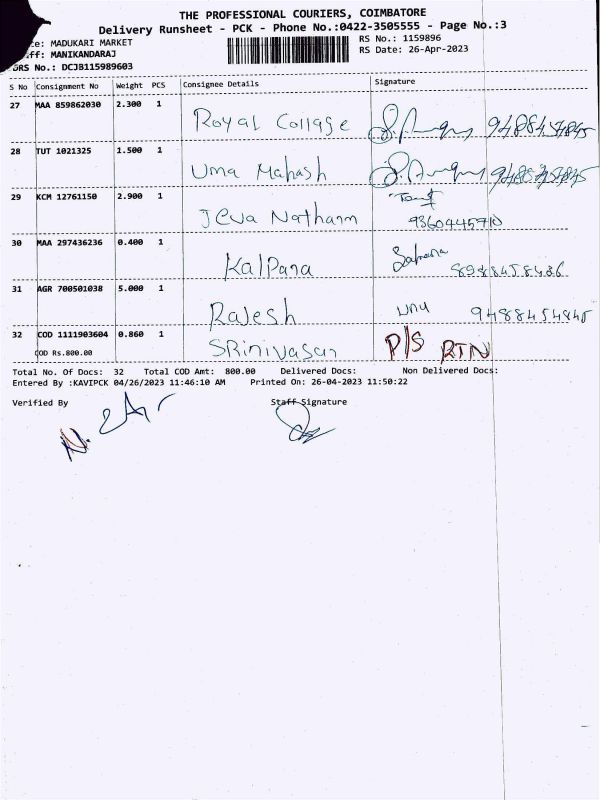 THE PROFESSIONAL COURIERS, COIMBATORE
Delivery Runsheet - PCK - Phone No.:0422-3505555 - Page No.:3
ce: MADUKARI MARKET RS No.: 1159896
ff: MANIKANDARAJ RS Date: 26-Apr-2023
DRS No.: DCJB115989603
S No Consignment No Weight PCS Consignee Details Signature
27 MAA 859862030 2.300 1 Royal Collage
28 TUT 1021325 1.500 1 Uma Mahash
29 KCM 12761150 2.900 1 Jeva Nathann 9360445710
30 MAA 297436236 0.400 1 Kalpana 8988458486
31 AGR 700501038 5.000 1 Rajesh 9488454845
32 COD 1111903604 0.860 1 SRinivasan P/S RTN
COD Rs.800.00
Total No. Of Docs: 32 Total COD Amt: 800.00 Delivered Docs: Non Delivered Docs:
Entered By :KAVIPCK 04/26/2023 11:46:10 AM Printed On: 26-04-2023 11:50:22
Verified By Staff Signature